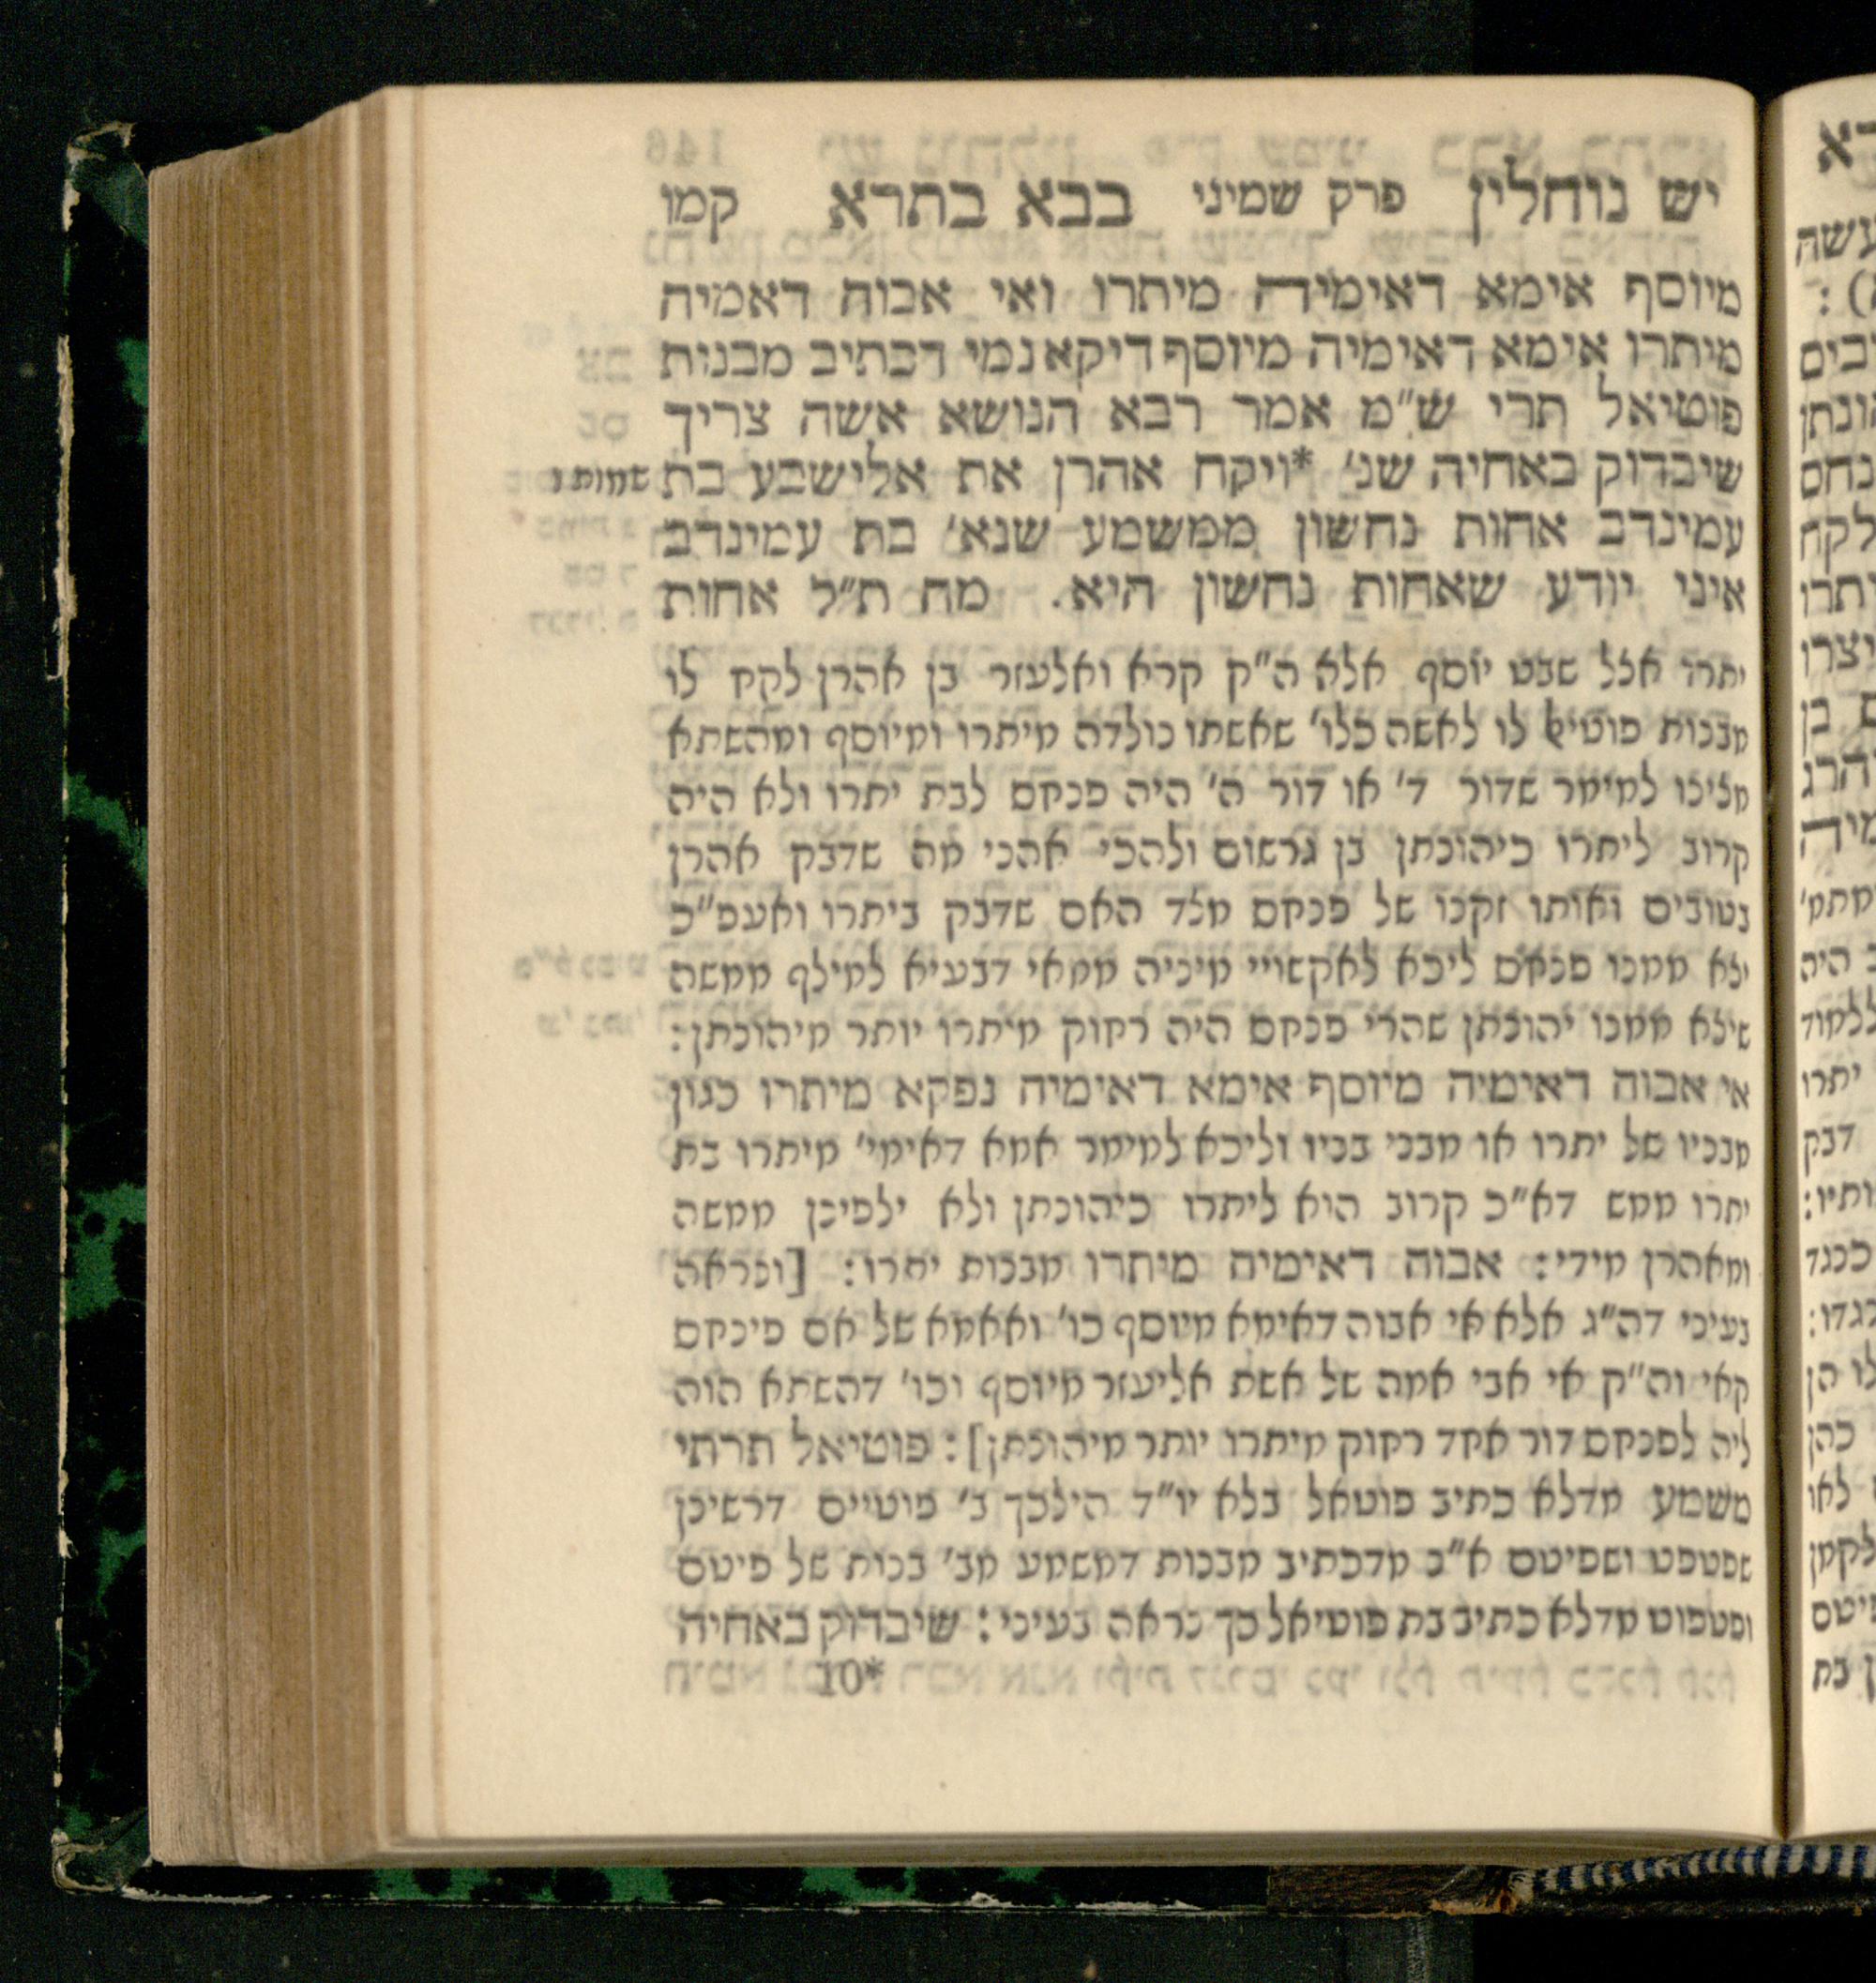 יש נוחלין פרק שמיני בבא בתרא קמו
מיוסף אימא דאימיה מיתרו ואי אבוה דאמיה
מיתרו אימא דאימיה מיוסף דיקא נמי דכתיב מבנות
פוטיאל תרי ש״מ אמר רבא הנושא אשה צריך
שיבדוק באחיה שנ׳ *ויקח אהרן את אלישבע בת
שמות ו
עמינדב אחות נחשון ממשמע שנא׳ בת עמינדב
איני יודע שאחות נחשון היא. מה ת״ל אחות
יתרו אצל שבט יוסף אלא ה״ק קרא ואלעזר בן אהרן לקח לו
מבנות פוטיאל לו לאשה כלו׳ שאשתו נולדה מיתרו ומיוסף ומהשתא
מצינו למימר שדור ד׳ או דור ה׳ היה פנחס לבת יתרו ולא היה
קרוב ליתרו כיהונתן בן גרשום ולהכי אהני מה שדבק אהרן
בטובים ואותו זקנו של פנחס מצד האם שדבק ביתרו ואעפ״כ
יצא ממנו פנחס ליכא לאקשויי מיניה ממאי דבעיא למילף ממשה
שיצא ממנו יהונתן שהרי פנחס היה רחוק מיתרו יותר מיהונתן:
אי אבוה דאימיה מיוסף אימא דאימיה נפקא מיתרו כגון
מבניו של יתרו או מבני בניו וליכא למימר אמא דאימי׳ מיתרו בת
יתרו ממש דא״כ קרוב הוא ליתרו כיהונתן ולא ילפינן ממשה
ומאהרן מידי: אבוה דאימיה מיתרו מבנות יתרו: [ונראה
בעיני דה״ג אלא אי אבוה דאימא מיוסף כו׳ ואאמא של אם פינחס
קאי וה״ק אי אבי אמה של אשת אליעזר מיוסף וכו׳ דהשתא הוה
ליה לפנחס דור אחד רחוק מיתרו יותר מיהונתן]: פוטיאל תרתי
משמע מדלא כתיב פוטאל בלא יו״ד הילכך ב׳ פוטיים דרשינן
שפטפט ושפיטם א״נ מדכתיב מבנות דמשמע מב׳ בנות של פיטם
ופטפוט מדלא כתיב בת פוטיאל כך נראה בעיני: שיבדוק באחיה
10*